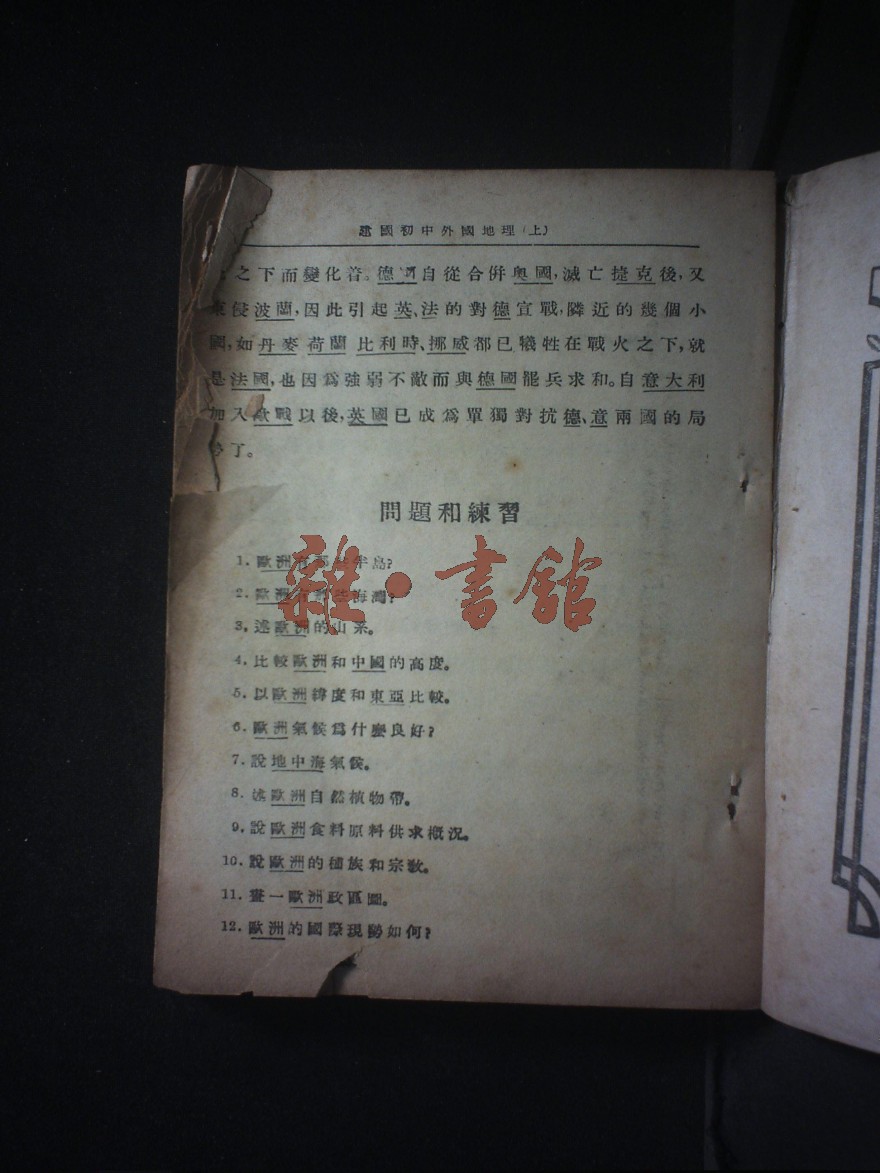 建國初中外國地理(上)
之下而變化着。德國自從合併奧國,滅亡捷克後,又
侵波蘭,因此引起英、法的對德宣戰,隣近的幾個小
國,如丹麥荷蘭比利時、挪威都已犧牲在戰火之下,就
是法國,也因爲強弱不敵而與德國罷兵求和。自意大利
加入歐戰以後,英國已成爲單獨對抗德、意兩國的局
了。
問題和練習
1. 歐洲有那些半島?
2. 歐洲有那些海灣?
3. 述歐洲的山系。
4. 比較歐洲和中國的高度。
5. 以歐洲緯度和東亞比較。
6. 歐洲氣候爲什麼良好?
7. 說地中海氣候。
8. 述歐洲自然植物帶。
9. 說歐洲食料原料供求概況。
10. 說歐洲的種族和宗教。
11. 畫一歐洲政區圖。
12. 歐洲的國際現勢如何?
雜·書館